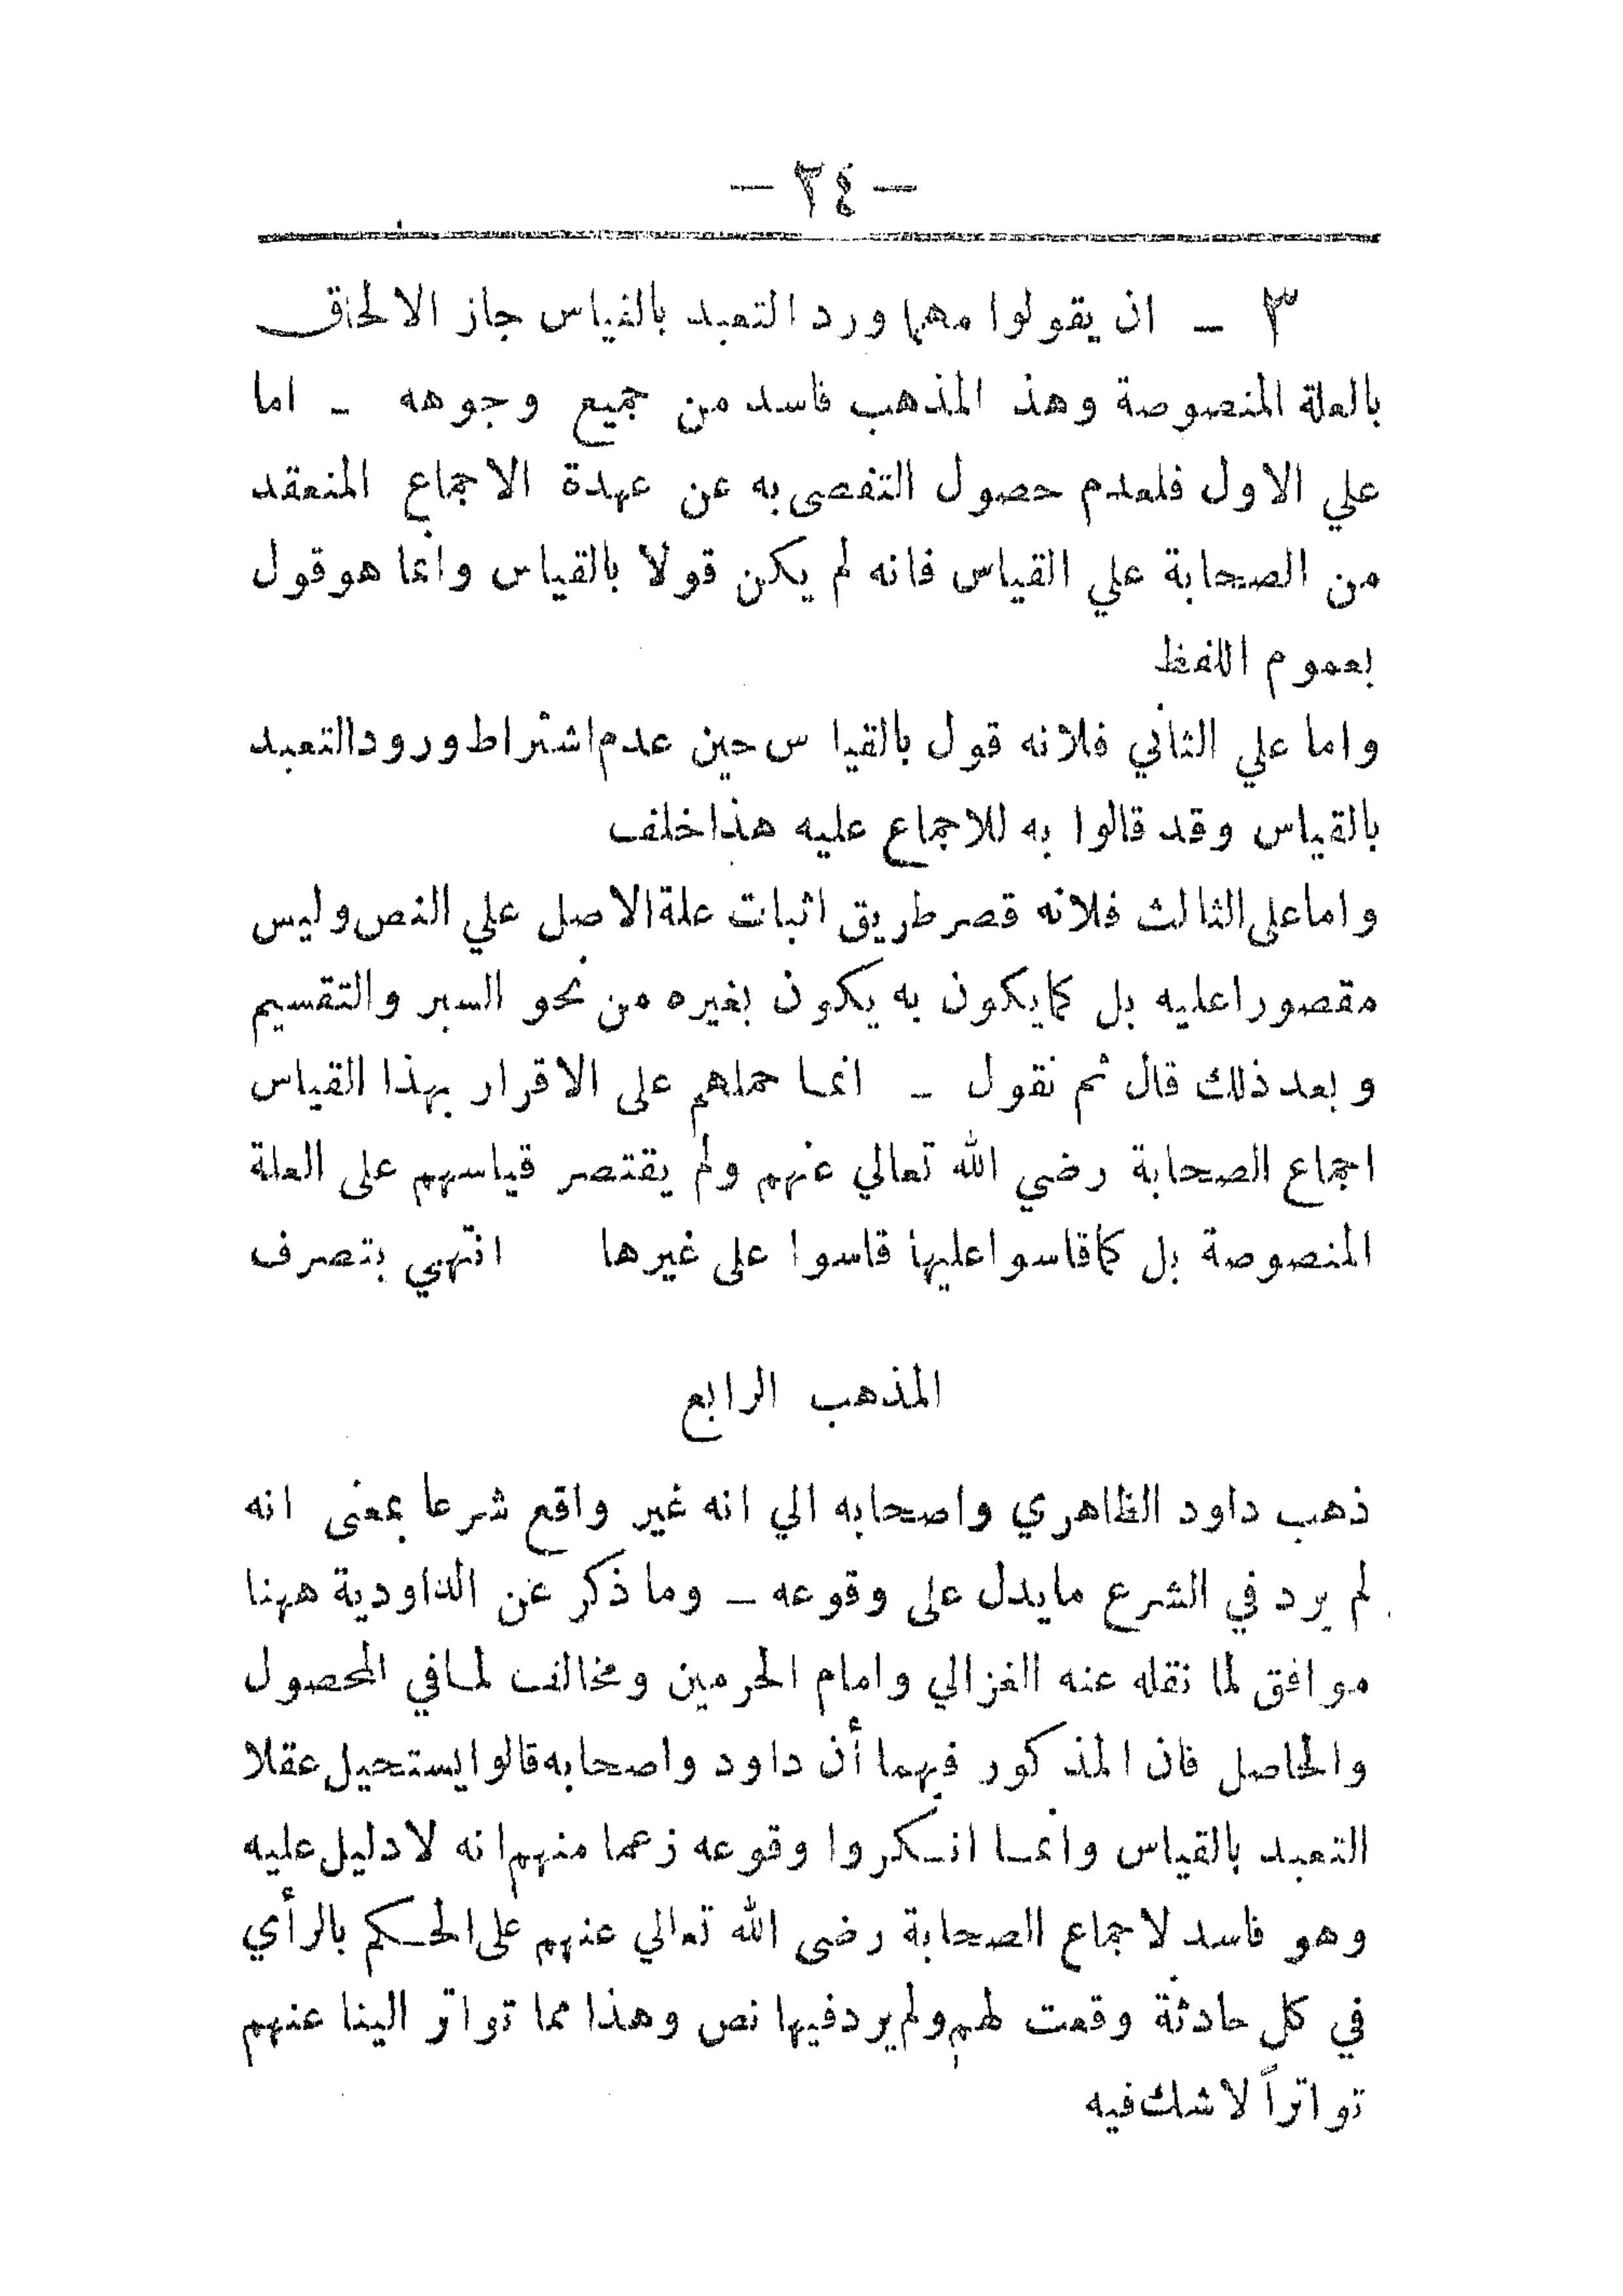 — ٢٤ —
٣ - ان يقولوا مهما ورد التعبد بالقياس جاز الالحاق
بالعلة المنصوصة وهذ المذهب فاسد من جميع وجوهه - اما
علي الاول فلعدم حصول التفصى به عن عهدة الاجماع المنعقد
من الصحابة علي القياس فانه لم يكن قولا بالقياس وانما هو قول
بعموم اللفظ
واما علي الثاني فلانه قول بالقيا س حين عدم اشتراط ورود التعبد
بالقياس وقد قالوا به للاجماع عليه هذا خلف
واما على الثالث فلانه قصر طريق اثبات علة الاصل علي النص وليس
مقصورا عليه بل كما يكون به يكون بغيره من نحو السبر والتقسيم
وبعد ذلك قال ثم نقول - انما حملهم على الاقرار بهذا القياس
اجماع الصحابة رضي الله تعالي عنهم ولم يقتصر قياسهم على العلة
المنصوصة بل كما قاسوا عليها قاسوا على غيرها انتهي بتصرف
المذهب الرابع
ذهب داود الظاهري واصحابه الي انه غير واقع شرعا بمعنى انه
لم يرد في الشرع ما يدل على وقوعه - وما ذكر عن الداودية ههنا
موافق لما نقله عنه الغزالي وامام الحرمين ومخالف لما في المحصول
والحاصل فان المذكور فيهما أن داود واصحابه قالوا يستحيل عقلا
التعبد بالقياس وانما انكروا وقوعه زعما منهم انه لا دليل عليه
وهو فاسد لاجماع الصحابة رضى الله تعالي عنهم على الحكم بالرأي
في كل حادثة وقعت لهم ولم يرد فيها نص وهذا مما تواتر الينا عنهم
تواتراً لا شك فيه